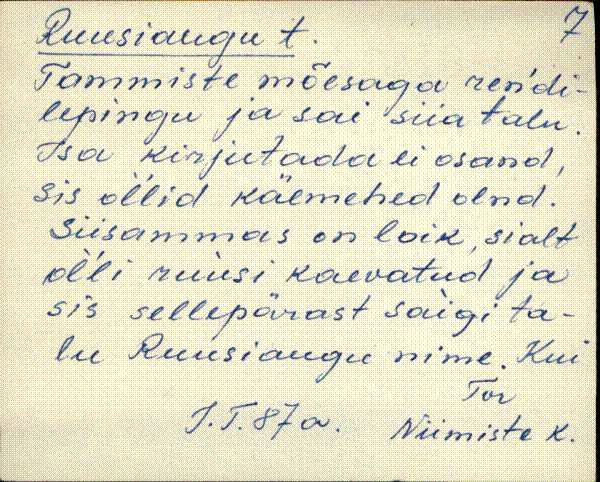 Ruusiaugu t. 7
Tammiste mõesaga rendi-
lepingu ja sai siia talu.
Isa kirjutada ei osand,
sis ollid käemehed olnd.
Siisammas on loik, sialt
olli ruusi kaevatud ja
sis sellepärast saigi ta-
lu Ruusiaugu nime. Kui
Tor
J.T. 87a. Niimiste k.